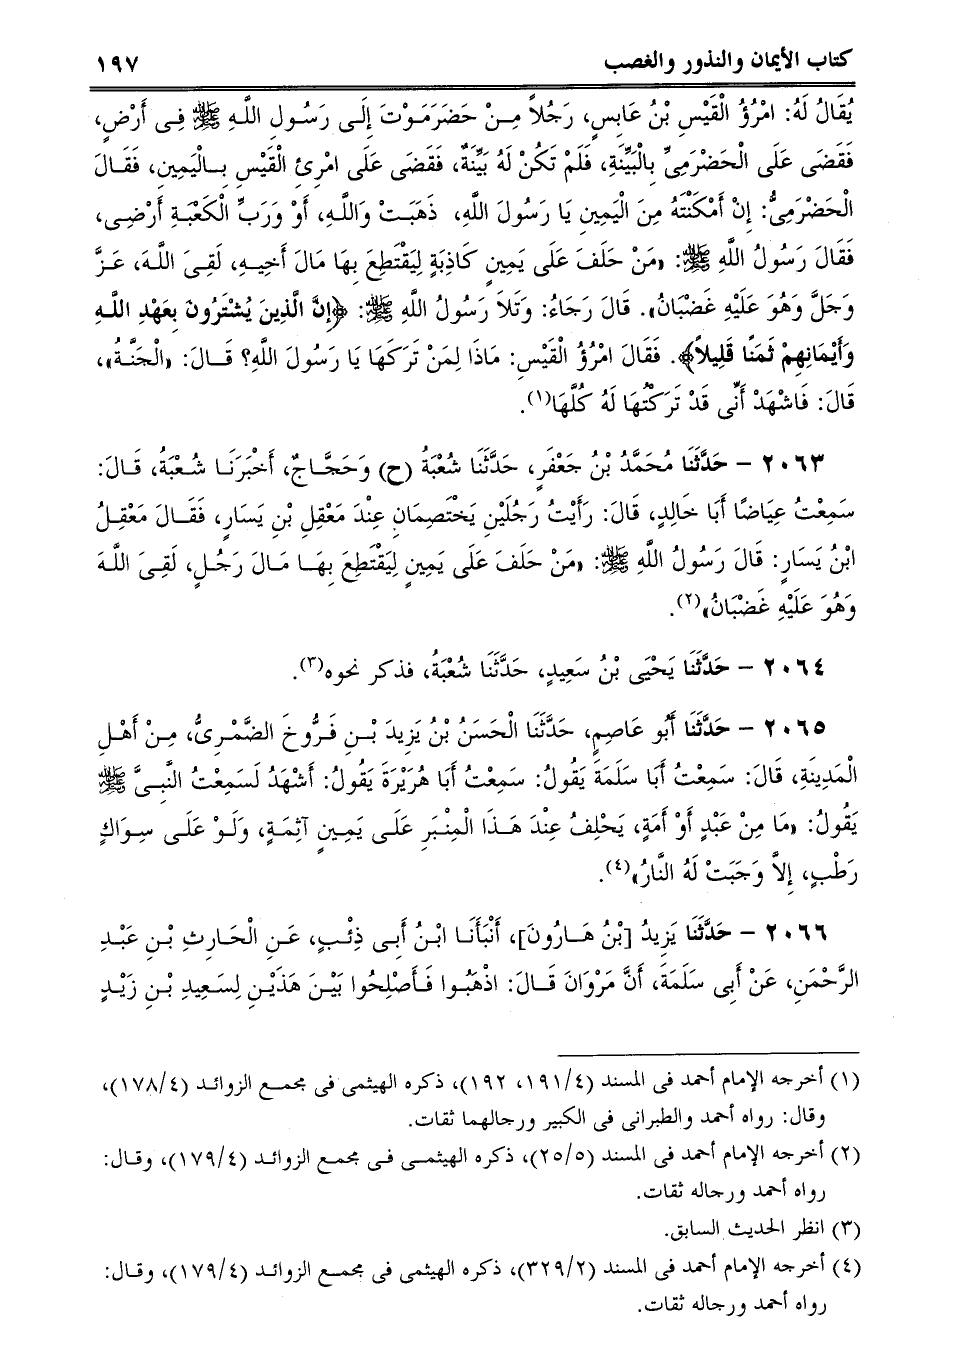 كتاب الأيمان والنذور والغصب ١٩٧
يُقَالُ لَهُ: امْرُؤُ الْقَيْسِ بْنُ عَابِسٍ، رَجُلاً مِـنْ حَضَرَمَوْتَ إِلَى رَسُولِ اللَّهِ ﷺ فِى أَرْضٍ،
فَقَضَى عَلَى الْحَضْرَمِىِّ بِالْبَيِّنَةِ، فَلَمْ تَكُنْ لَهُ بَيِّنَةٌ، فَقَضَى عَلَى امْرِئِ الْقَيْسِ بِـالْيَمِينِ، فَقَـالَ
الْحَضْرَمِىُّ: إِنْ أَمْكَنْتَهُ مِنَ الْيَمِينِ يَا رَسُولَ اللَّهِ، ذَهَبَـتْ وَاللَّـهِ، أَوْ وَرَبِّ الْكَعْبَـةِ أَرْضِـى،
فَقَالَ رَسُولُ اللَّهِ ﷺ: «مَنْ حَلَفَ عَلَى يَمِينٍ كَاذِبَةٍ لِيَقْتَطِعَ بِهَا مَالَ أَخِيـهِ، لَقِـىَ اللَّـهَ، عَـزَّ
وَجَلَّ وَهُوَ عَلَيْهِ غَضْبَانُ». قَالَ رَجَاءُ: وَتَلاَ رَسُولُ اللَّهِ ﷺ: ﴿إِنَّ الَّذِينَ يُشْتَرُونَ بِعَهْدِ اللَّـهِ
وَأَيْمَانِهِمْ ثَمَنًا قَلِيلاً﴾. فَقَالَ امْرُؤُ الْقَيْسِ: مَاذَا لِمَنْ تَرَكَهَا يَا رَسُولَ اللَّهِ؟ قَـالَ: «الْجَنَّـةُ»،
قَالَ: فَاشْهَدْ أَنِّى قَدْ تَرَكْتُهَا لَهُ كُلَّهَا(١).
٢٠٦٣ - حَدَّثَنَا مُحَمَّدُ بْنُ جَعْفَرٍ، حَدَّثَنَا شُعْبَةُ (ح) وَحَجَّـاجٌ، أَخْبَرَنَـا شُـعْبَةُ، قَـالَ:
سَمِعْتُ عِيَاضًا أَبَا خَالِدٍ، قَالَ: رَأَيْتُ رَجُلَيْنِ يَخْتَصِمَانِ عِنْدَ مَعْقِلِ بْنِ يَسَارٍ، فَقَـالَ مَعْقِلُ
ابْنُ يَسَارٍ: قَالَ رَسُولُ اللَّهِ ﷺ: «مَنْ حَلَفَ عَلَى يَمِينٍ لِيَقْتَطِعَ بِهَـا مَـالَ رَجُـلٍ، لَقِـىَ اللَّـهَ
وَهُوَ عَلَيْهِ غَضْبَانُ»(٢).
٢٠٦٤ - حَدَّثَنَا يَحْيَى بْنُ سَعِيدٍ، حَدَّثَنَا شُعْبَةُ، فذكر نحوه(٣).
٢٠٦٥ - حَدَّثَنَا أَبُو عَاصِمٍ، حَدَّثَنَا الْحَسَنُ بْنُ يَزِيدَ بْـنِ فَـرُّوخَ الضَّمْـرِىُّ، مِـنْ أَهْـلِ
الْمَدِينَةِ، قَالَ: سَمِعْتُ أَبَا سَلَمَةَ يَقُولُ: سَمِعْتُ أَبَا هُرَيْرَةَ يَقُولُ: أَشْهَدُ لَسَمِعْتُ النَّبِـىَّ ﷺ
يَقُولُ: «مَا مِنْ عَبْدٍ أَوْ أَمَةٍ، يَحْلِفُ عِنْدَ هَـذَا الْمِنْـبَرِ عَلَـى يَمِـينٍ آثِمَـةٍ، وَلَـوْ عَلَـى سِـوَاكٍ
رَطْبٍ، إِلاَّ وَجَبَتْ لَهُ النَّارُ»(٤).
٢٠٦٦ - حَدَّثَنَا يَزِيدُ [بْنُ هَـارُونَ]، أَنْبَأَنَـا ابْـنُ أَبِـى ذِئْـبٍ، عَـنِ الْحَـارِثِ بْـنِ عَبْـدِ
الرَّحْمَنِ، عَنْ أَبِى سَلَمَةَ، أَنَّ مَرْوَانَ قَـالَ: اذْهَبُـوا فَـأَصْلِحُوا بَيْـنَ هَذَيْـنِ لِسَـعِيدِ بْـنِ زَيْـدٍ
(١) أخرجه الإمام أحمد فى المسند (١٩١/٤، ١٩٢)، ذكره الهيثمى فى مجمـع الزوائـد (١٧٨/٤)،
وقال: رواه أحمد والطبرانى فى الكبير ورجالهما ثقات.
(٢) أخرجه الإمام أحمد فى المسند (٢٥/٥)، ذكره الهيثمـى فـى مجمـع الزوائـد (١٧٩/٤)، وقـال:
رواه أحمد ورجاله ثقات.
(٣) انظر الحديث السابق.
(٤) أخرجه الإمام أحمد فى المسند (٣٢٩/٢)، ذكره الهيثمى فى مجمـع الزوائـد (١٧٩/٤)، وقـال:
رواه أحمد ورجاله ثقات.